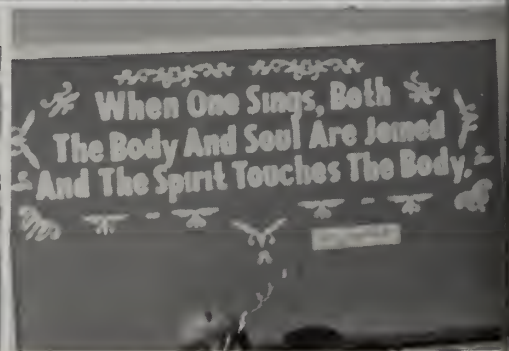 When One Sings, Both
The Body And Soul Are Joined
And The Spirit Touches The Body.